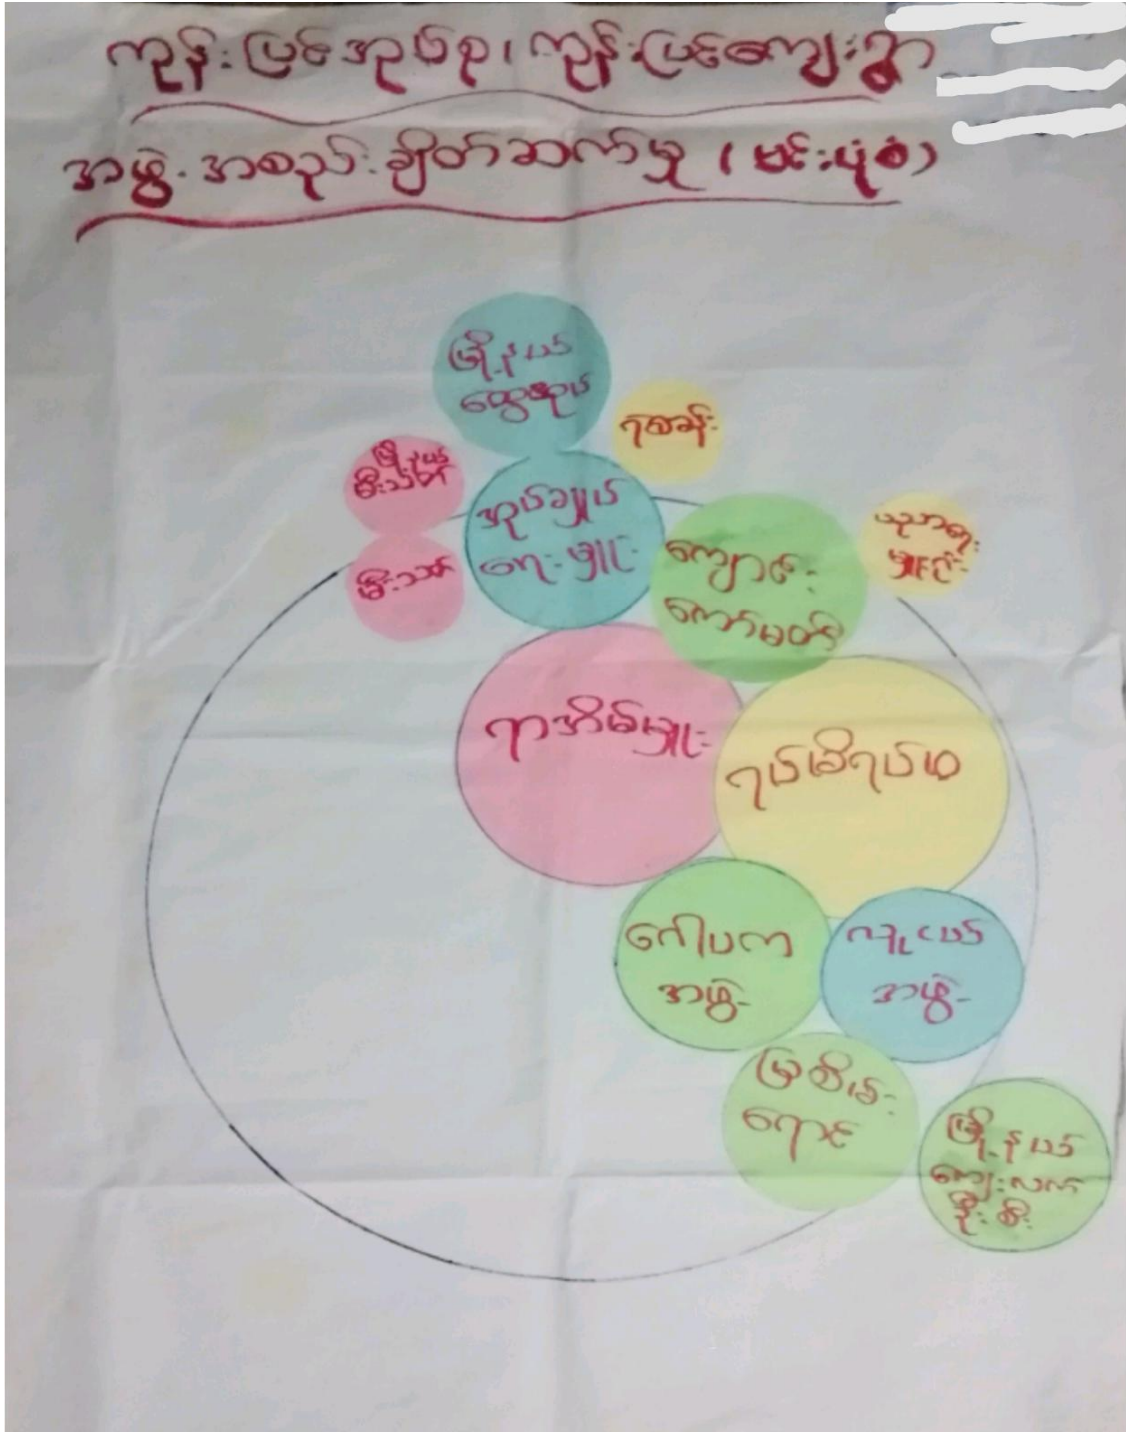 ကုန်းမြင့်အုပ်စု၊ ကုန်းမြင့်ကျေးရွာ
အဖွဲ့အစည်းချိတ်ဆက်မှု (မင်းပုံစံ)
မြို့နယ်
ထွေအုပ်
ရစခန်း
မြို့နယ်
မီးသတ်
အုပ်ချုပ်
ရေးမှူး
မီးသတ်
ကျောင်း
ကော်မတီ
ရာအိမ်မှူး
ရပ်မိရပ်ဖ
ဂေါပက
အဖွဲ့
လူငယ်
အဖွဲ့
မြစိမ်း
ရောင်
မြို့နယ်
ကျေးလက်
ဦးစီး